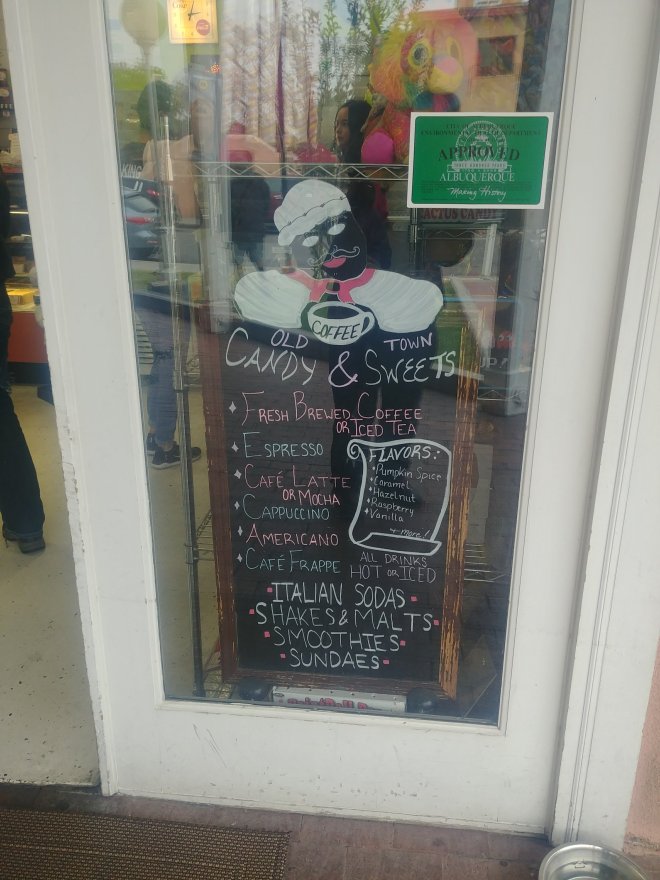 Coke
CITY OF ALBUQUERQUE
ENVIRONMENTAL HEALTH DEPARTMENT
APPROVED
ALBUQUERQUE
Making History
CACTUS CANDY
KING
COFFEE
OLD TOWN
CANDY & SWEETS
FRESH BREWED COFFEE
OR ICED TEA
ESPRESSO
CAFÉ LATTE
OR MOCHA
CAPPUCCINO
AMERICANO
CAFÉ FRAPPE
FLAVORS:
Pumpkin Spice
Caramel
Hazelnut
Raspberry
Vanilla
+ more!
ALL DRINKS
HOT OR ICED
ITALIAN SODAS
SHAKES & MALTS
SMOOTHIES
SUNDAES